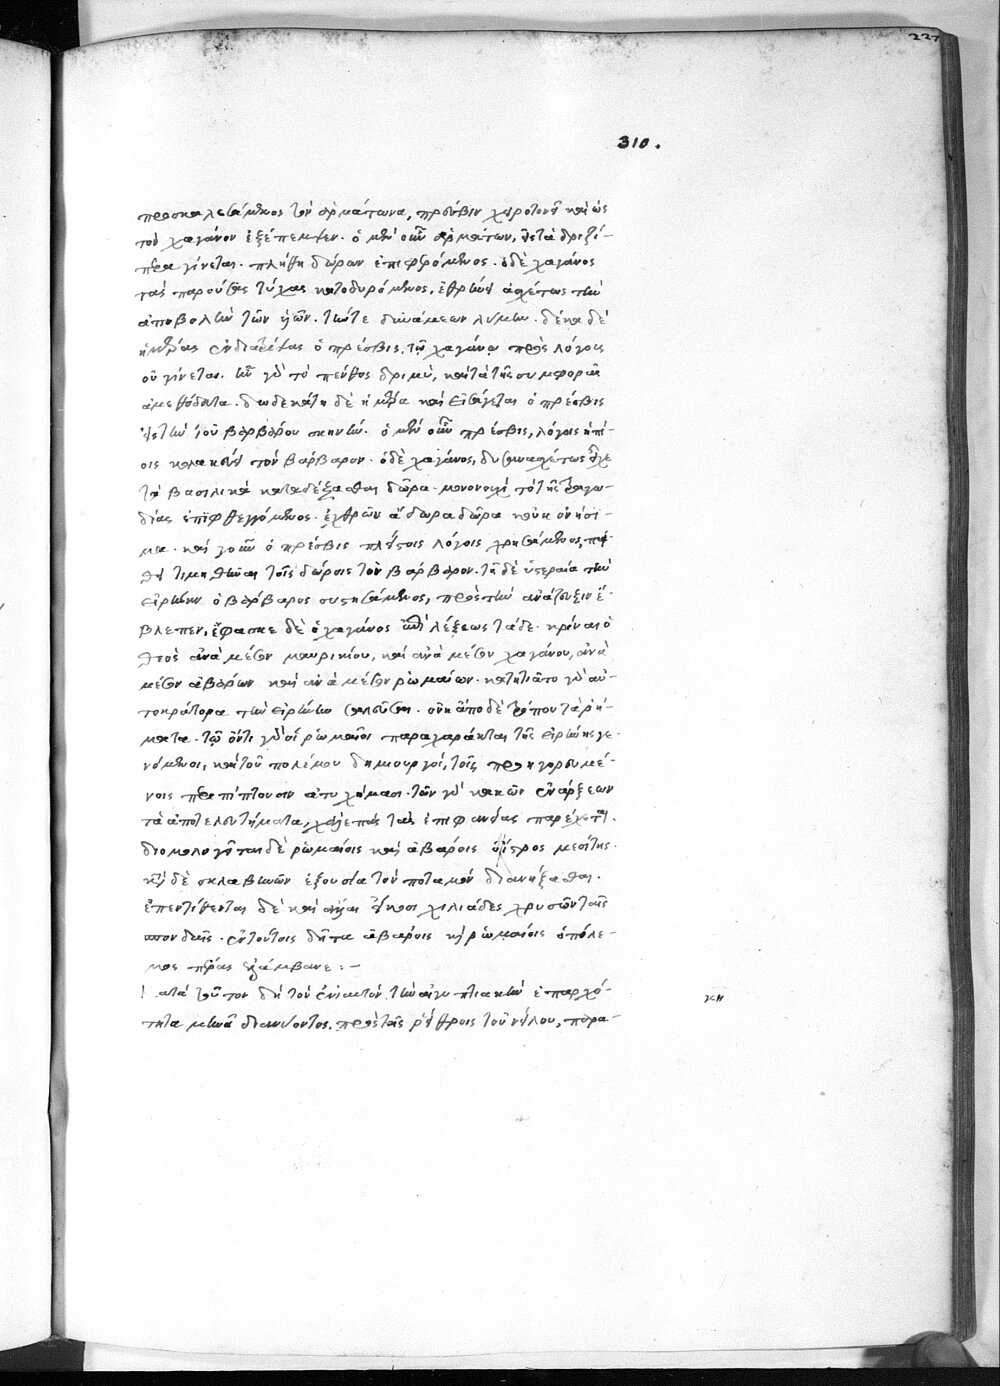 227
310.
προσκαλεσάμενος τὸν ἁρμάτωνα, πρέσβιν χειροτονεῖ καὶ ὡς
τὸν χαγάνον ἐξέπεμψεν. ὁ μὲν οὖν ἁρμάτων, ἐς τὰ δριζί-
περα γίνεται. πλήθη δώρων ἐπιφερόμενος. ὁ δὲ χαγάνος
τὰς παρούσας τύχας κατοδυρόμενος, ἐθρήνει ἀσχέτως τὴν
ἀποβολὴν τῶν υἱῶν. τήν τε δυνάμεων λύμην. δέκα δὲ
ἡμέρας ἐνδιατρίψας ὁ πρέσβις, τῷ χαγάνῳ πρὸς λόγους
οὐ γίνεται. ἦν γὰρ τὸ πένθος δριμύ, καὶ τὰ τῆς συμφορᾶς
ἀμεθόδευτα. δωδεκάτη δὲ ἡμέρα καὶ εἰσάγεται ὁ πρέσβις
εἰς τὴν τοῦ βαρβάρου σκηνήν. ὁ μὲν οὖν πρέσβις, λόγοις ἠπί-
οις κολακεύει τὸν βάρβαρον. ὁ δὲ χαγάνος, δυσανασχέτως εἶχε
τὰ βασιλικὰ καταδέξασθαι δῶρα. μονονουχὶ τὸ τῆς τραγω-
δίας ἐπιφθεγγόμενος. ἐχθρῶν ἄδωρα δῶρα κοὐκ ὀνήσι-
μα. καὶ γοῦν ὁ πρέσβις πλείστοις λόγοις χρησάμενος, πεί-
θει τιμηθῆναι τοῖς δώροις τὸν βάρβαρον. τῇ δὲ ὑστεραία τὴν
εἰρήνην ὁ βάρβαρος συστησάμενος, πρὸς τὴν ἀνάζευξιν ἔ-
βλεπεν, ἔφασκε δὲ ὁ χαγάνος ἐπὶ λέξεως τάδε. κρίναι ὁ
θεὸς ἀνὰ μέσον μαυρικίου, καὶ ἀνὰ μέσον χαγάνου, ἀνὰ
μέσον ἀβάρων καὶ ἀνὰ μέσον ῥωμαίων. κατητιᾶτο γὰρ αὐ-
τοκράτορα τὴν εἰρήνην σαλεῦσαι. οὐκ ἄπο δὲ τρόπου τὰ ῥή-
ματα. τῷ ὄντι γὰρ οἱ ῥωμαῖοι παραχαράκται τῆς εἰρήνης γε-
νόμενοι, καὶ τοῦ πολέμου δημιουργοί, τοῖς προηγορευμέ-
νοις περιπίπτουσιν ἀτυχήμασι. τῶν γὰρ κακῶν ἐνάρξεων
τὰ ἀποτελευτήματα, χαλεπὰς τὰς ἐπιφανείας παρέχεται.
διομολογεῖται δὲ ῥωμαίοις καὶ ἀβάροις ὁ ἴστρος μεσίτης.
κατὰ δὲ σκλαβηνῶν ἐξουσία τὸν ποταμὸν διανήξασθαι.
ἐπεντίθενται δὲ καὶ ἄλλαι εἴκοσι χιλιάδες χρυσῶν ταῖς
σπονδαῖς. ἐν τούτοις δῆτα ἀβάροις καὶ ῥωμαίοις ὁ πόλε-
μος πέρας ἐλάμβανε: –
ατὰ τοῦτον δὴ τὸν ἐνιαυτόν, τὴν αἰγυπτιακὴν ἐπαρχό-
τητα μηνᾶ διανύοντος, πρὸς τοῖς ῥείθροις τοῦ νείλου, παρα-